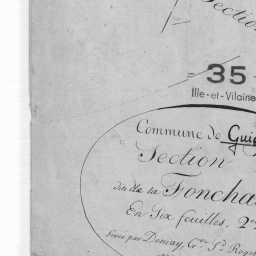 Section
35
Ille-et-Vilaine
Commune de Guig
Section
dite de la Foncha
En Six feuilles. 2
Levée par